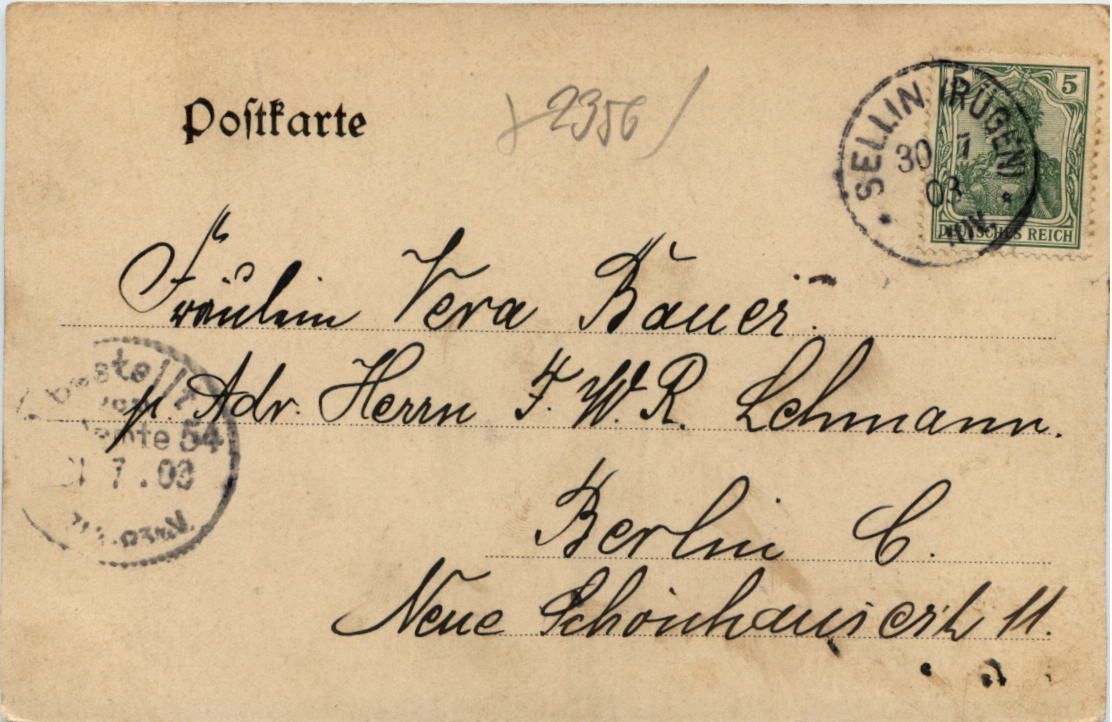 Postkarte
2356
SELLIN (RÜGEN)
30 7
03
5
DEUTSCHES REICH
Fräulein Vera Bauer.
p. Adr. Herrn F. W. R. Lehmann.
Berlin C.
Neue Schönhauserstr 11.
Bestellt
Postamte 54
7.03